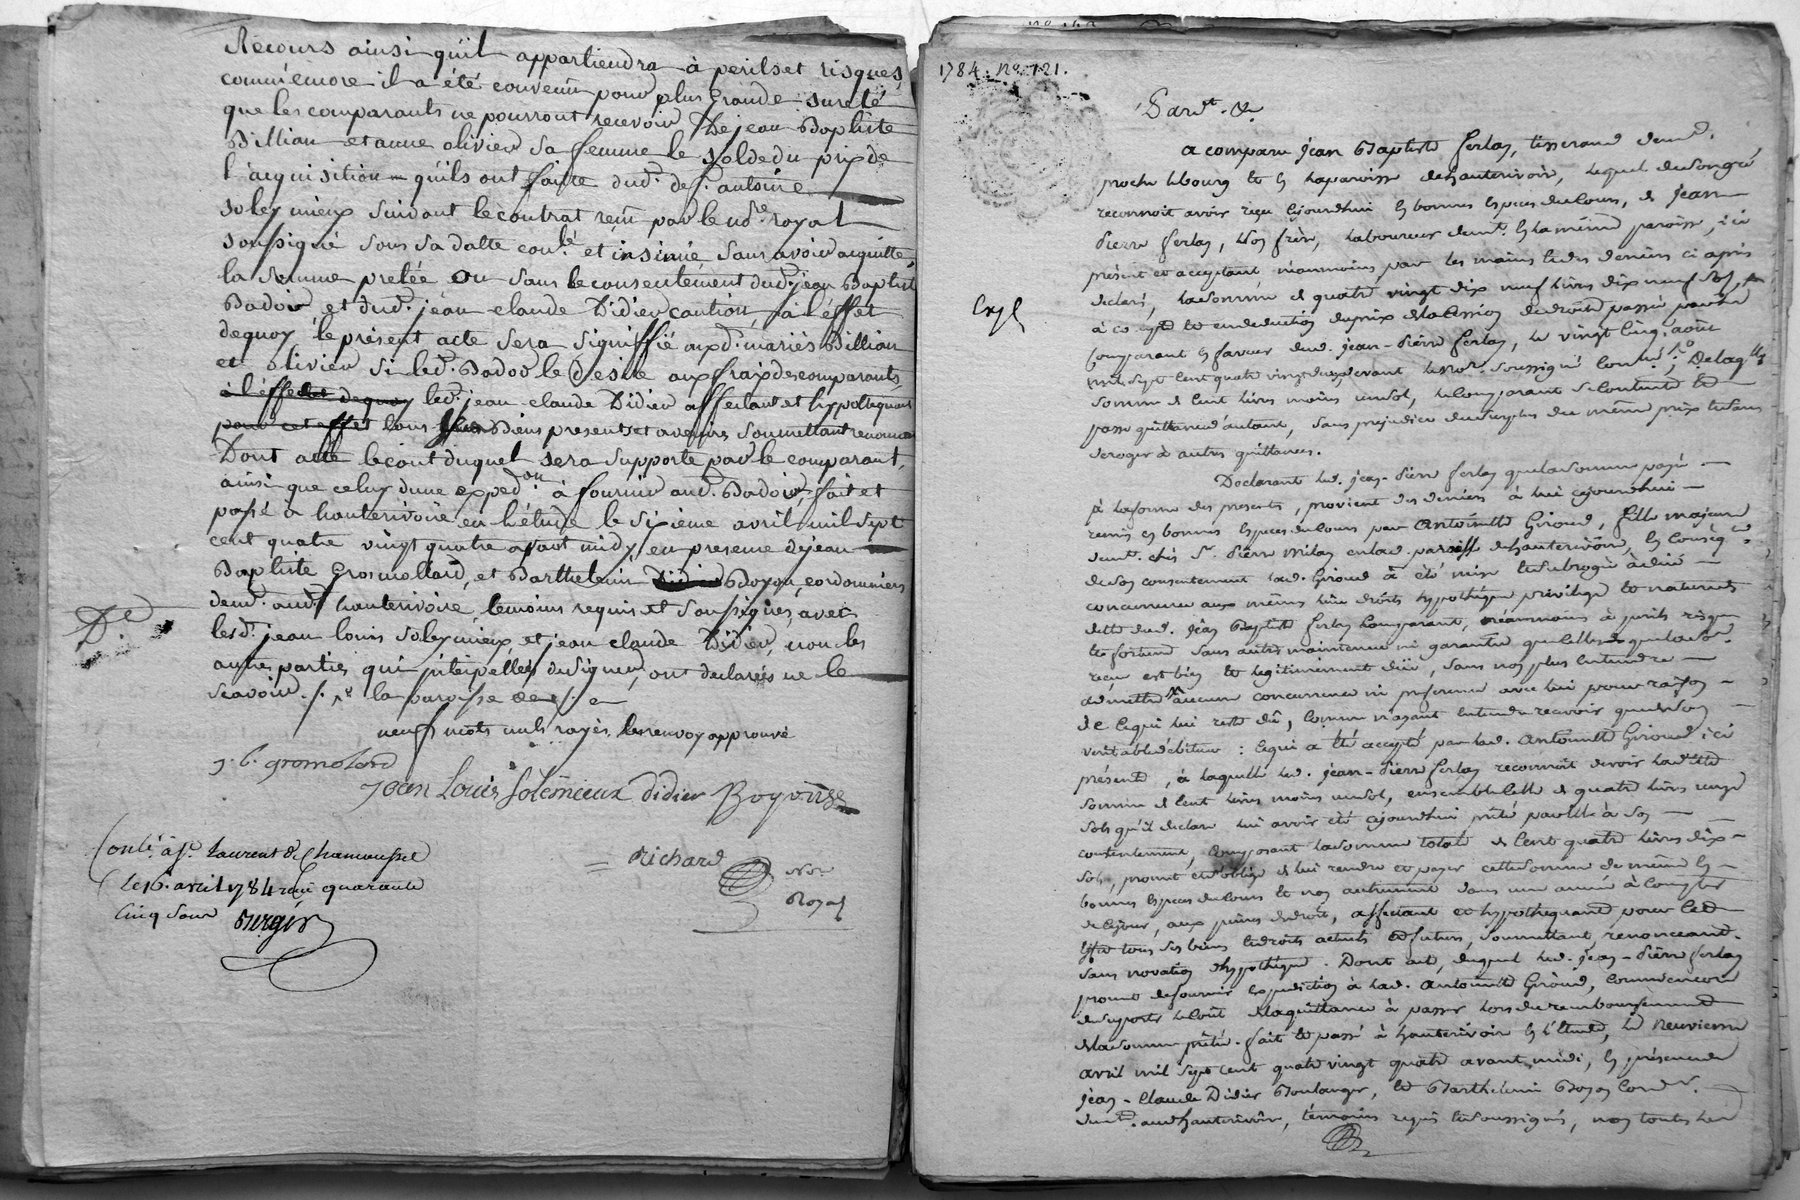 Recours ainsi qu'il appartiendra à perils et risques,
comm'encore il a été convenu pour plus Grande sureté
que les comparants ne pourront recevoir De jean Baptiste
Billian et anne olivier sa femme le solde du prix de
l'acquisition qu'ils ont faitte dud. de s. antoine
soleymieux suivant le contrat reçu par le nore. royal
soussigné sous sa datte conlé. et insinué, sans avoir acquitté
la somme pretée ou sans le consentement dud. jean Baptiste
Badoir et dud. jean claude Didier caution, à l'effet
dequoy le présent acte sera signiffié auxd. mariés Billian
et olivier si led. Badoir le désire aux fraix des comparants
à l'effet dequoy led. jean claude Didier affectant et hypothequant
pour cet effet tous ses Biens presents et avenirs soumettant renoncant
Dont acte le cout duquel sera supporté par le comparant,
ainsi que celuy d'une expedon. à fournir aud. Badoir, fait et
passé a hauterivoire en l'étude le sixieme avril mil sept
cent quatre vingt quatre avant midy, en presence de jean
Baptiste Grosmollard, et Barthelemi Didier Boyon, cordonniers
demt. aud. hauterivoire, temoins requis et soussignés, avec
lesd. jean louis soleymieux, et jean claude Didier, non les
autres parties qui interpellés de signer, ont declarés ne le
scavoir. la paroisse de
neuf mots nuls rayés, le renvoy approuvé
De
j. b. gromolard
jean Louis Solemieux Didier Boyon
Conlé. à st. Laurent de Chamousset
le 16. avril 1784 reçu quarante
cinq sous Berger
Richard
nore
Royal
1784. no. 121.
Pardt. &
a comparu jean Baptiste ferlay, tisserand demt.
proche le bourg et en la paroisse de hauterivoire, lequel de son gré
reconnoit avoir reçu cejourd'hui en bonnes especes du cours, de jean
Pierre ferlay, son frère, laboureur demt. en la même paroisse, ici
présent et acceptant néanmoins par les mains et des deniers ci après
declaré, la somme de quatre vingt dix neuf livres dix neuf sols
Expé
à compte et en deduction du prix de la cession de droits passée par led.
comparant en faveur dud. jean-Pierre ferlay, le vingt cinq août
mil sept cent quatre vingt devant le nore. soussigné conlé. De laqlle.
somme de cent livres moins un sol, le comparant se contente et
passe quittance d'autant, sans prejudice du surplus du même prix et sans
deroger à autres quittances.
Declarant led. jean-Pierre ferlay que la somme payée
à la forme des presentes, provient des deniers à lui cejourd'hui
remis en bonnes especes du cours par Antoinette Giroud, fille majeure
demt. chés sr. Pierre en lad. paroisse de hauterivoire, en conséqce.
de son consentement lad. Giroud a été mise et subrogée à due
concurrence aux mêmes lieu droits hypothèque privilege et naturité
dette dud. jean Baptiste ferlay comparant, néanmoins à perils risque
et fortune sans autre maintenue ni garantie que celle que la somme
reçue est bien et legitimement due, sans non plus entendre
admettre aucune concurrence ni preference avec lui pour raison
de ce qui lui reste dû, comme n'ayant entendu recevoir que de son
veritable débiteur : ce qui a été accepté par lad. Antoinette Giroud ici
présente, à laquelle led. jean-Pierre ferlay reconnoit devoir lad.
somme de cent livres moins un sol, ensemble celle de quatre livres onze
sols qu'il declare lui avoir été cejourd'hui prêtée par elle à son
contentement, composant la somme totale de cent quatre livres dix
sols, promet et s'oblige de lui rendre et payer cette somme de même en
bonnes especes du cours et non autrement dans une année à compter
de cejour, aux peines de droit, affectant et hypothequant pour led.
effet tous ses biens et droits actuels et futurs, soumettant, renonceant.
sans novation d'hypothèque. Dont acte, duquel led. jean-Pierre ferlay
promet de fournir expedition à lad. Antoinette Giroud, comm'encore
de supporter le coût de la quittance à passer lors du remboursement
de la somme prêtée. fait et passé à hauterivoire en l'étude, le neuvieme
avril mil sept cent quatre vingt quatre avant midi, en présence de
jean-Claude Didier Boulanger, et Barthelemi Boyon cordr.
demts. aud. hauterivoire, témoins requis et soussignés, non toutes les